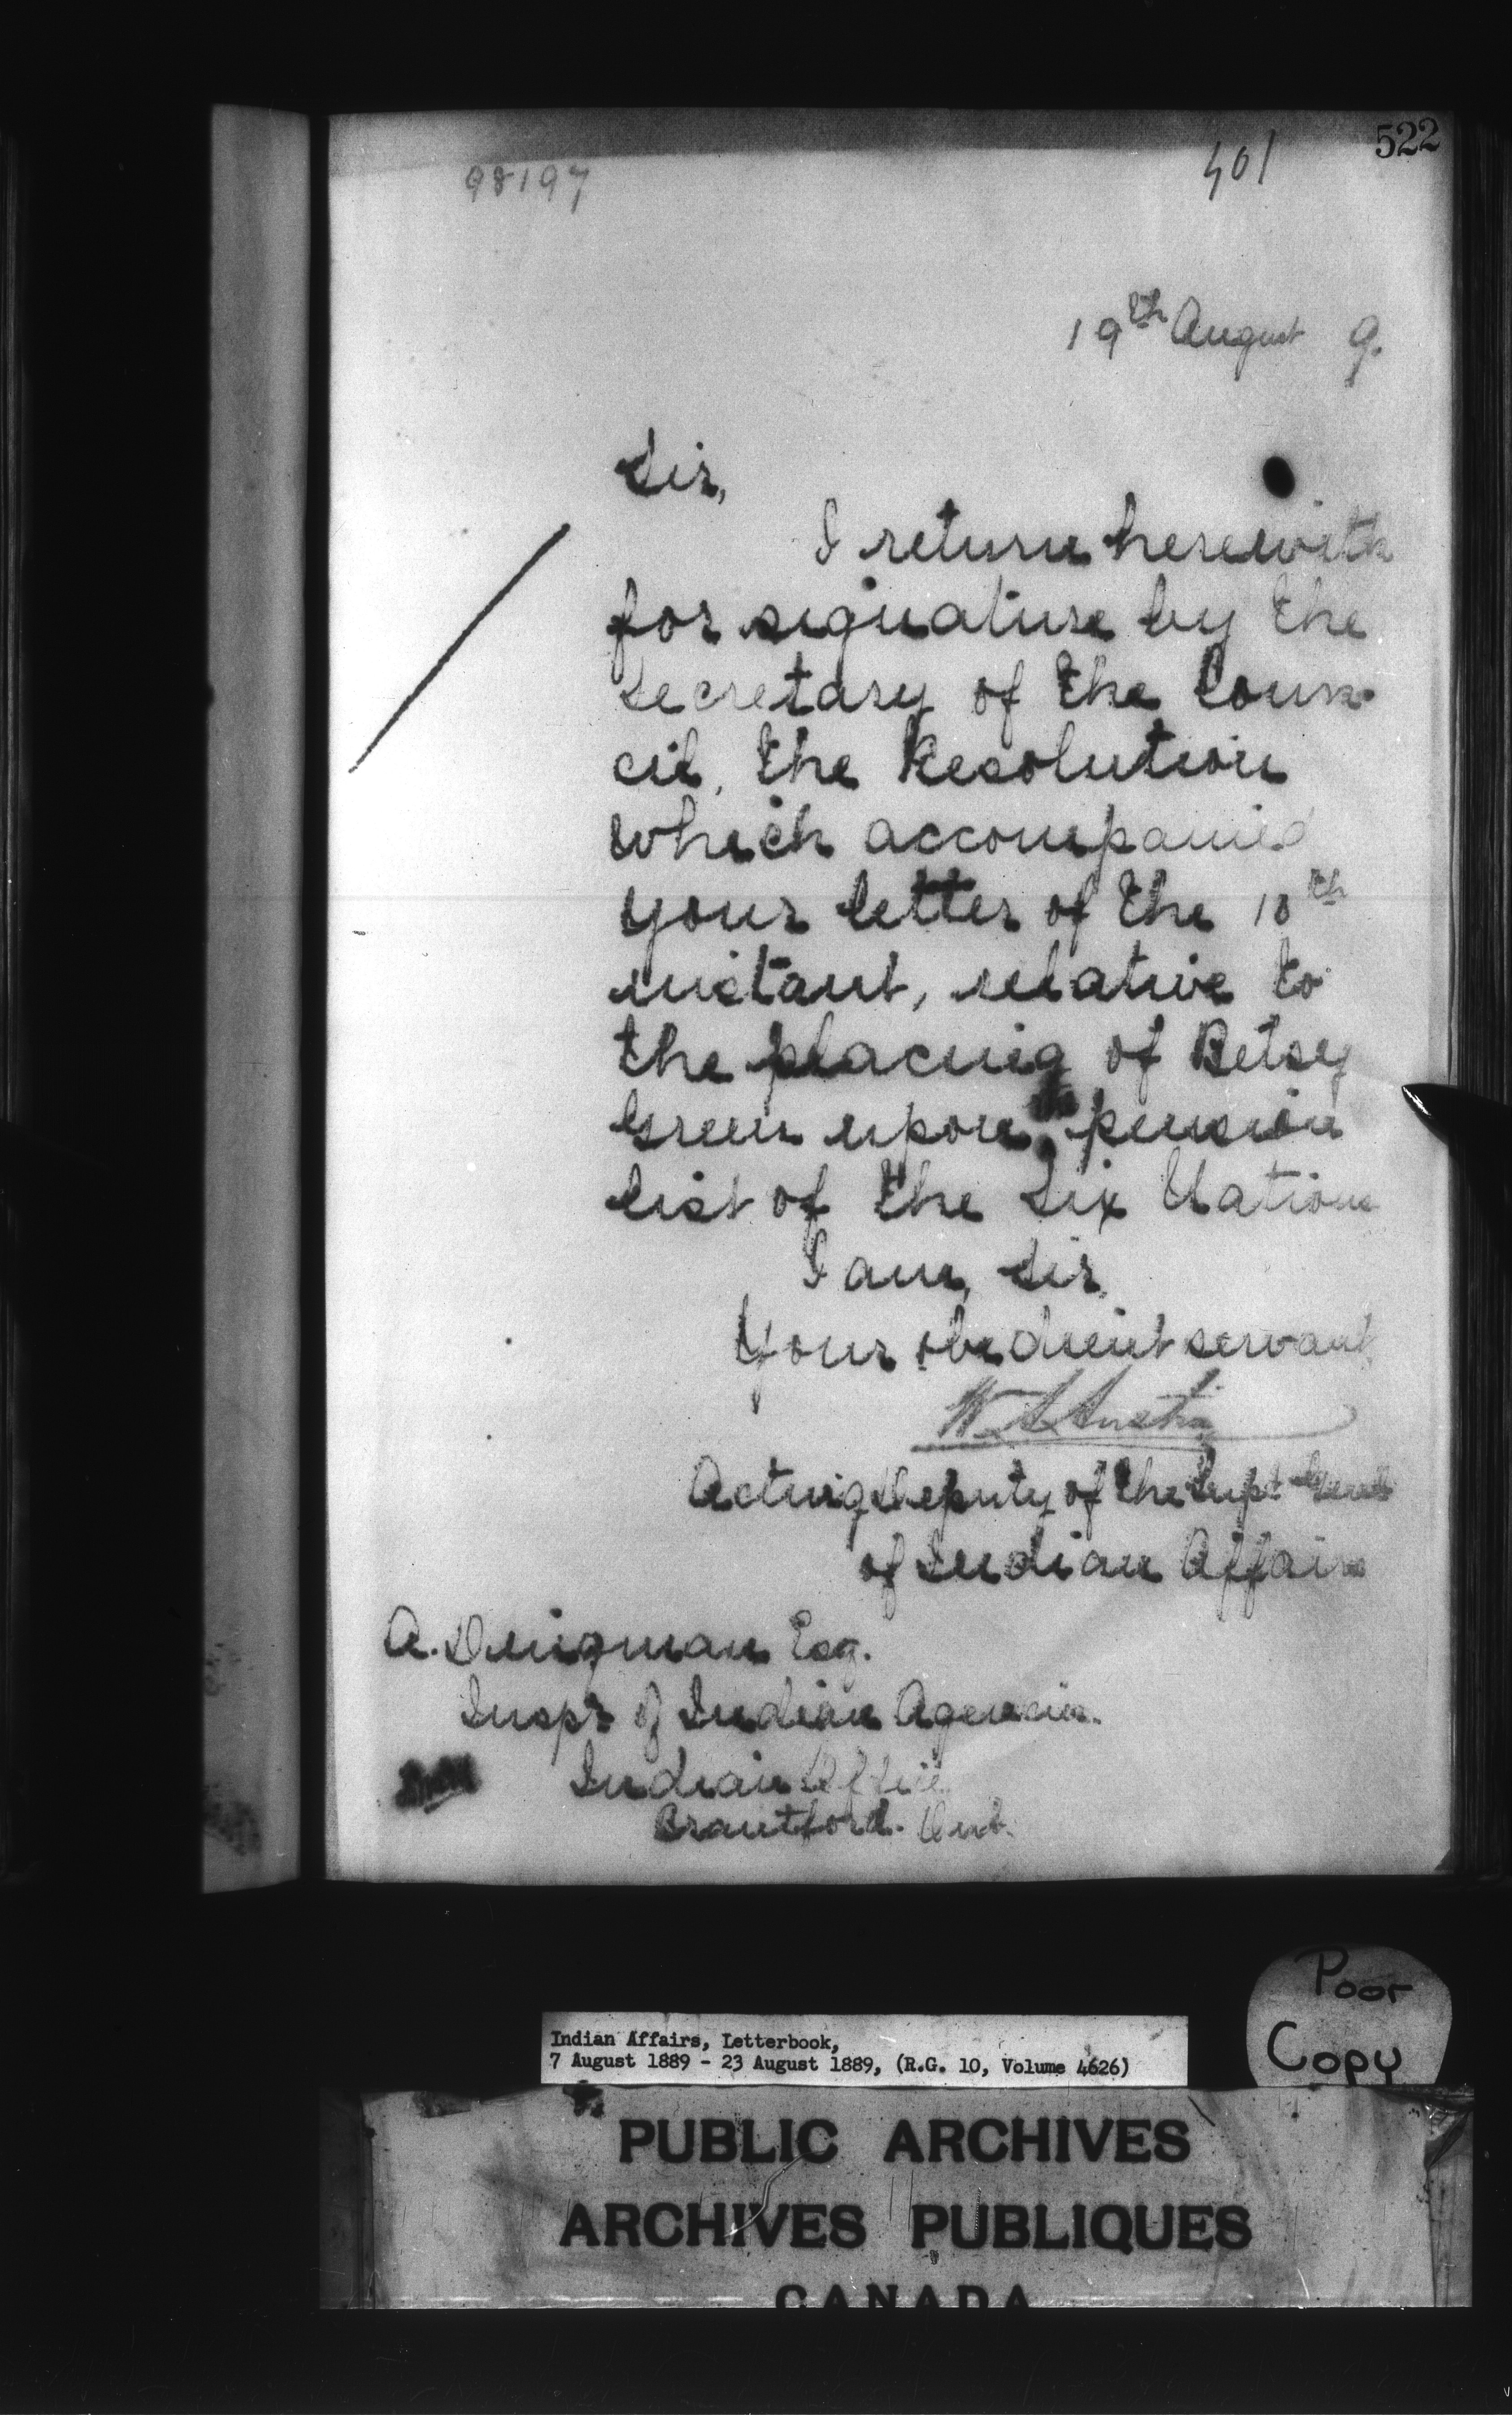 522
401
98197
19th August 9.
Sir,
I return herewith
for signature by the
Secretary of the Coun-
cil, the Resolution
which accompanied
your letter of the 10th
instant, relative to
the placing of Betsey
Green upon the pension
list of the Six Nations
I am, Sir,
Your obedient servant,
Acting Deputy of the Supt Genl
of Indian Affairs
A. Dingman Esq.
Inspr of Indian Agencies.
Indian Office
Brantford. Ont.
Poor
Copy
Indian Affairs, Letterbook,
7 August 1889 - 23 August 1889, (R.G. 10, Volume 4626)
PUBLIC ARCHIVES
ARCHIVES PUBLIQUES
CANADA